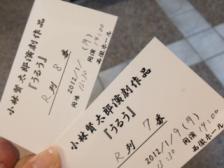 小林賢太郎演劇作品
『うるう』
R列 8番
2012/1/9(月)
開演
小林賢太郎演劇作品
『うるう』
R列 7番
2012/1/9(月)
開演 19:00